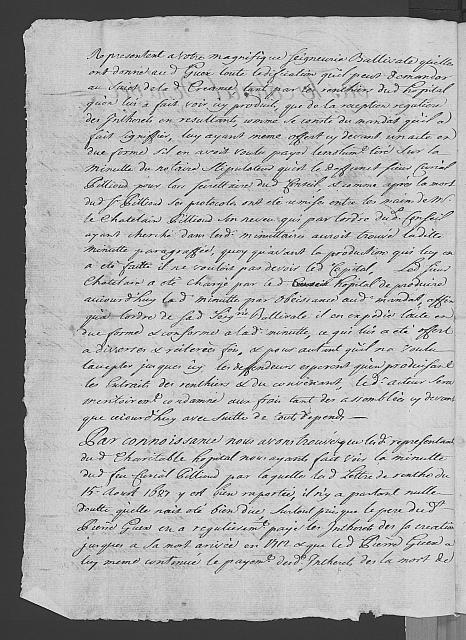 Representent a votre magnifique Seigneurie Ballivale qu'elles
ont donné aud Guex toute ledification quil peut demander
au Sujet de la d Creance, tant par les renthiers dud hôpital
quon lui à fait voir icy produit, que de la reception reguliere
des Inthorets en resultants, comme Se conste du mandat quil a
fait signiffier, luy ayant meme offert cy devant un acte en
due forme s'il en avoit voulu payer tiré Sur la
Minutte du notaire Stipulateur qui est le deffunct Sieur Curial
Pillioud pour lors Secretaire dud Conseil, & comme après la mort
du d Sr Pilliod Ses protocols ont été remis entre les mains de Mr
le Chatelain Pillioud Son neveu qui par lordre dud Conseil
ayant cherché dans lesd minuttaires auroit trouvé ladite
minutte paragraffée, quoy qu'avant la production qui luy en
a été faitte il ne vouloit pas devoir led Capital, Led Sieur
Chatelain a été chargé par led hôpital de produire
aujourd'huy lad minutte par obeissance aud mandat, affin
qua lordre de sad Seigrie Ballivale il en expedie lacte en
due forme & conforme a lad minutte, ce qui lui a été offert
a diverses & réiterées fois, & pour autant quil na voulu
laccepter jusques icy les deffendeurs esperent quen produisant
les Extraits des renthiers & du convenant, led acteur Sera
condamné aux frais tant des assemblées cy devant
que aujourd'huy avec Suitte de tout depend —
Par connoissance nous avons trouvé que led representant
du d Charitable hôpital nous ayant fait voir la minutte
du feu Curial Pillioud par laquelle la d Lettre de renthe du
15e Aout 1687 y est bien raportée, il n'y a partant nulle
doutte quelle naie été bien due Surtout puis que le pere dud Sr
Pierre Guex en a regulierement payé les Inthorets des sa creation
jusques a Sa mort arrivée en & que led Pierre Guex a
luy meme continué le payemt desd Inthorets des la mort de